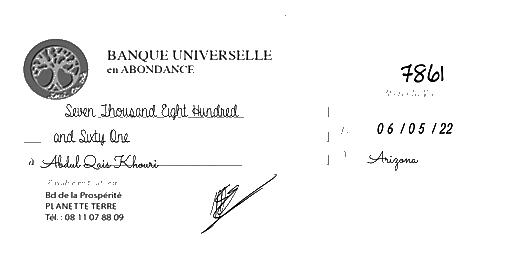 BANQUE UNIVERSELLE
en ABONDANCE
7861
Seven Thousand Eight Hundred
and Sixty One
06/05/22
à Abdul Qais Khouri
Arizona
Bd de la Prospérité
PLANETTE TERRE
Tél. : 08 11 07 88 09